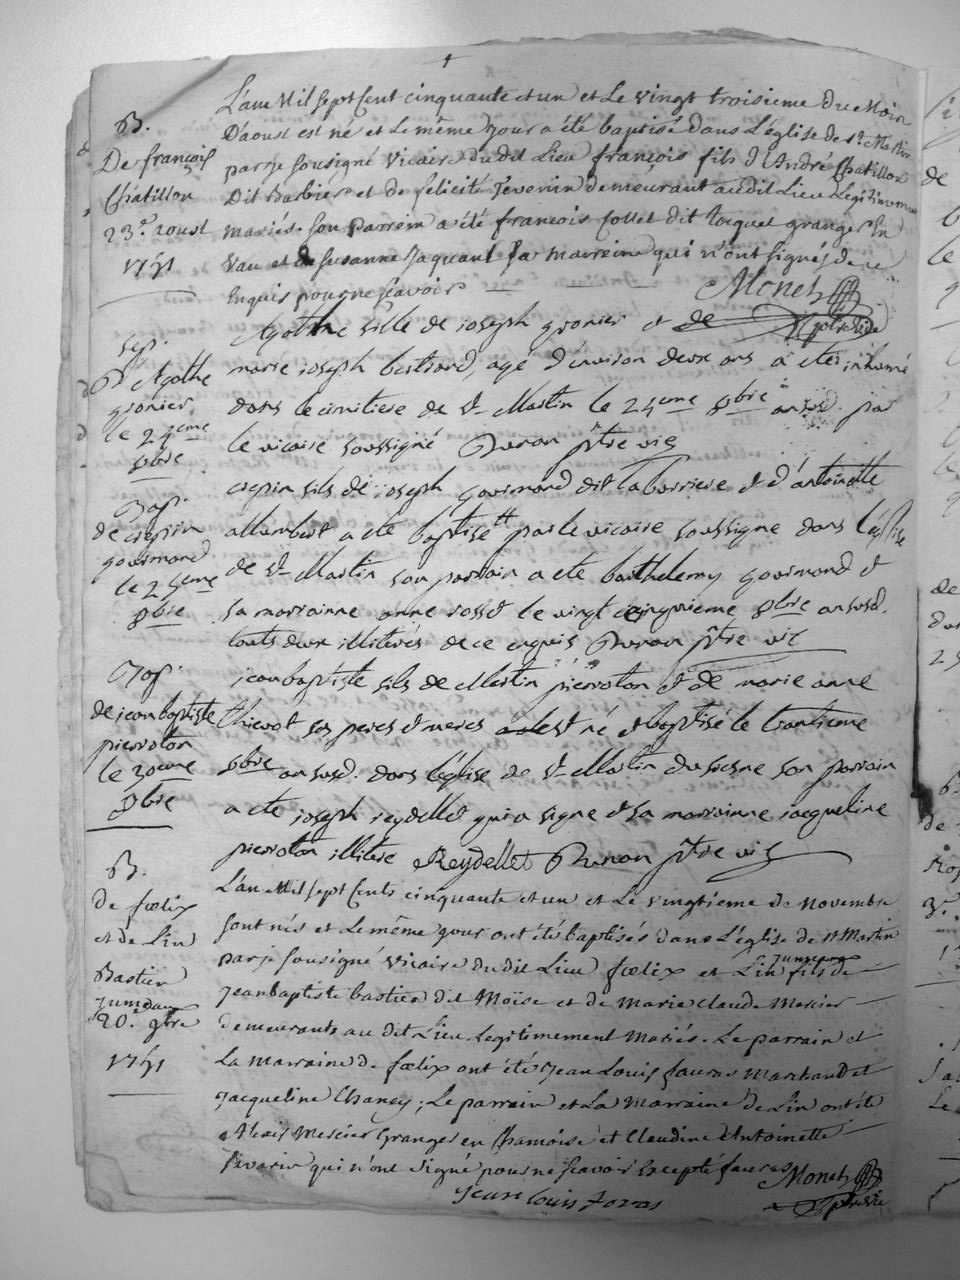 B.
De françois
Chatillon
23.e aoust
1751
L'an Mil sept Cent cinquante et un et Le vingt troisieme du Mois
D'aoust est né et Le même jour a été baptisé dans L'église de st Martin
par je sousigné Vicaire du dit Lieu françois fils d'André Chatillon
Dit Barbier et de felicité Thevenin demeurant audit Lieu Legitimement
mariés. son parrein a été francois Collet dit Jacquet granger En
Vau et Susanne Jaquant sa marreine qui n'ont signés de ce
Enquis pour ne sçavoir
Monet
ptre vic
sep.
D'Agathe
gronier
le 24eme
8bre
Agathe fille de ioseph gronier et de
marie ioseph bertiard, agé d'environ deux ans a été inhumé
dans le cimitiere de st Martin le 24eme 8bre an susd. par
le vicaire soussigné Dunan ptre vic
Bap.
de crepin
gourmand
le 25eme
8bre
crepin fils de ioseph gourmand dit laberriere et d'antoinette
allembert a ete baptisé par le vicaire soussigne dans l'église
de st Martin son parrain a ete barthelemy gourmand et
sa marrainne anne rosset le vingt cinquieme 8bre an susd.
touts deux illiterés de ce enquis Dunan ptre vic
Bap.
de jean baptiste
pierroton
le 30eme
8bre
jean baptiste fils de Martin pierroton et de marie anne
thievot ses peres et meres est né et baptisé le trantieme
8bre an susd. dans l'eglise de st Martin du fresne son parrain
a ete joseph reydellet qui a signe et sa marrainne jacqueline
pierroton illitere Reydellet Dunan ptre vic
B.
de fœlix
et de Lin
Bastien
Jumeaux
20.e 9bre
1751
L'an Mil sept Cents cinquante et un et Le vingtieme de Novembre
sont nés et Le même jour ont été baptisés dans L'église de st Martin
par je sousigné Vicaire du dit Lieu fœlix et Lin Jumeaux fils de
Jean baptiste bastien dit Moïse et de Marie Claude Mercier
demeurants au dit Lieu Legitimement Mariés. Le parrain et
La marraine de fœlix ont été Jean Louis favras Marchand et
Jacqueline Chaney; Le parrain et La Marraine de Lin ont été
Alexis Mercier Granger en Chamoise et Claudine Antoinette
Sevarin qui n'ont signé pour ne sçavoir Excepté favras
Monet
ptre vic
Jean Louis favras